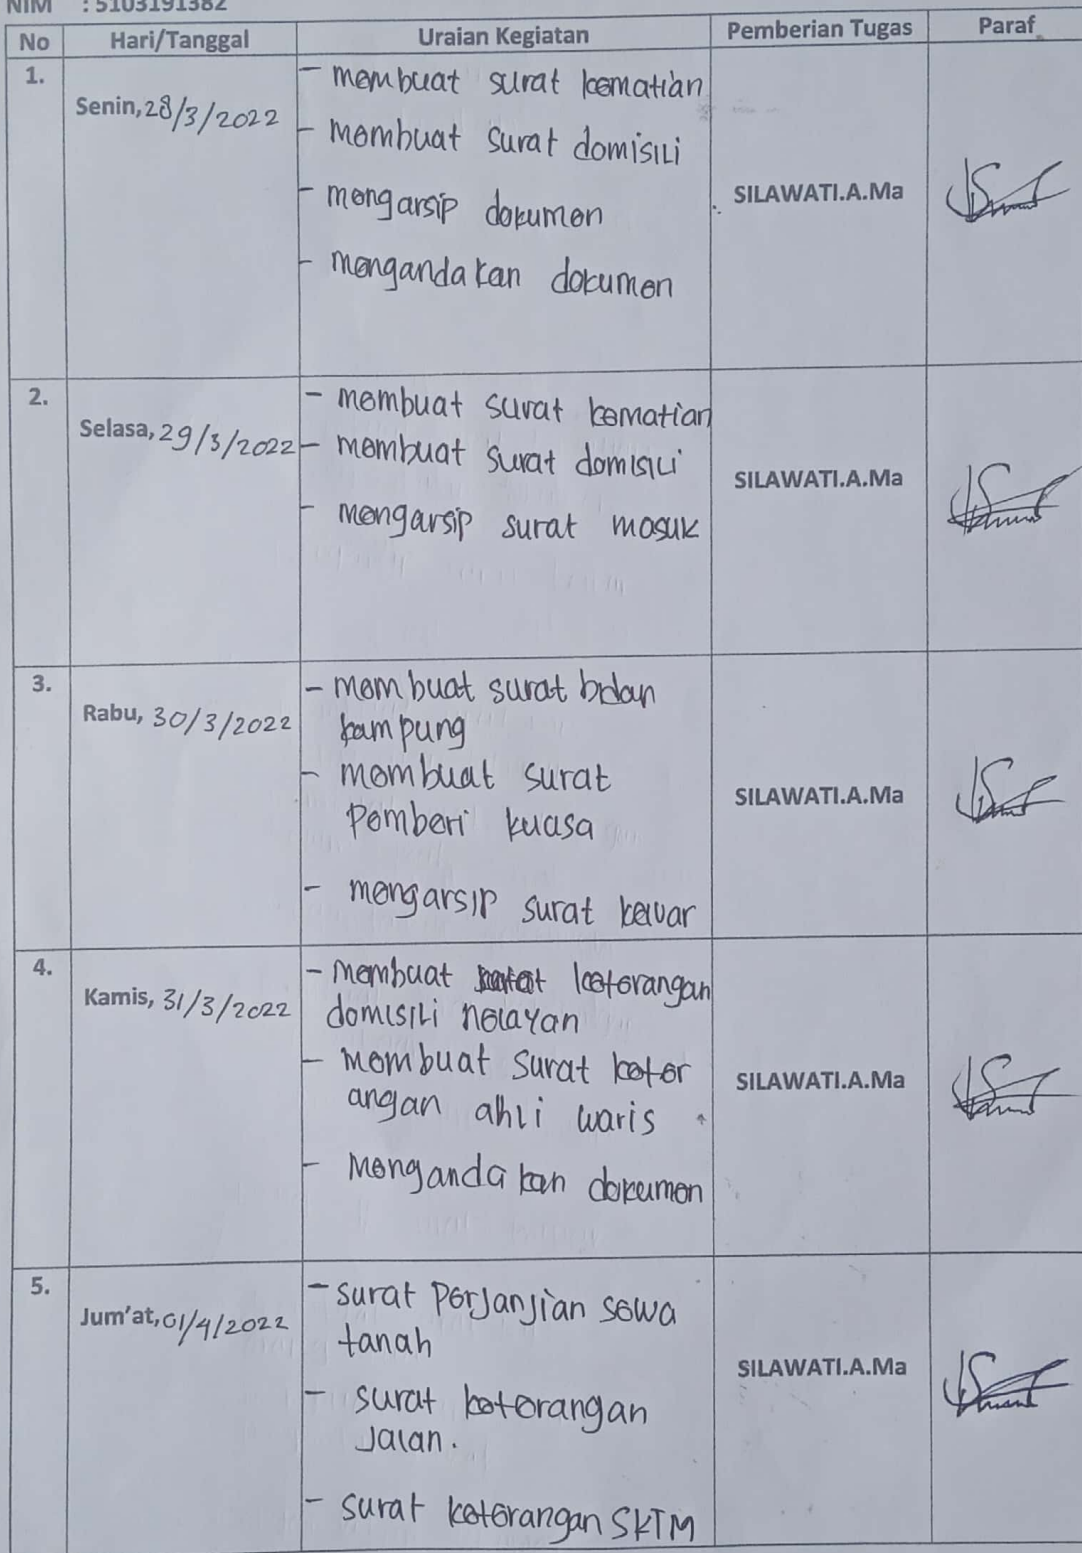 NIM : 5103191382
No Hari/Tanggal Uraian Kegiatan Pemberian Tugas Paraf
1.
Senin, 28/3/2022
- membuat surat kematian
- membuat surat domisili
- mengarsip dokumen
- mengandakan dokumen
SILAWATI.A.Ma
2.
Selasa, 29/3/2022
- membuat surat kematian
- membuat surat domisili
- mengarsip surat masuk
SILAWATI.A.Ma
3.
Rabu, 30/3/2022
- membuat surat bidan
kampung
- membuat surat
Pemberi kuasa
- mengarsip surat keluar
SILAWATI.A.Ma
4.
Kamis, 31/3/2022
- membuat keterangan
domisili nelayan
- membuat surat keter
angan ahli waris
- mengandakan dokumen
SILAWATI.A.Ma
5.
Jum'at, 01/4/2022
- surat Perjanjian sewa
tanah
- surat keterangan
Jalan.
- surat keterangan SKTM
SILAWATI.A.Ma